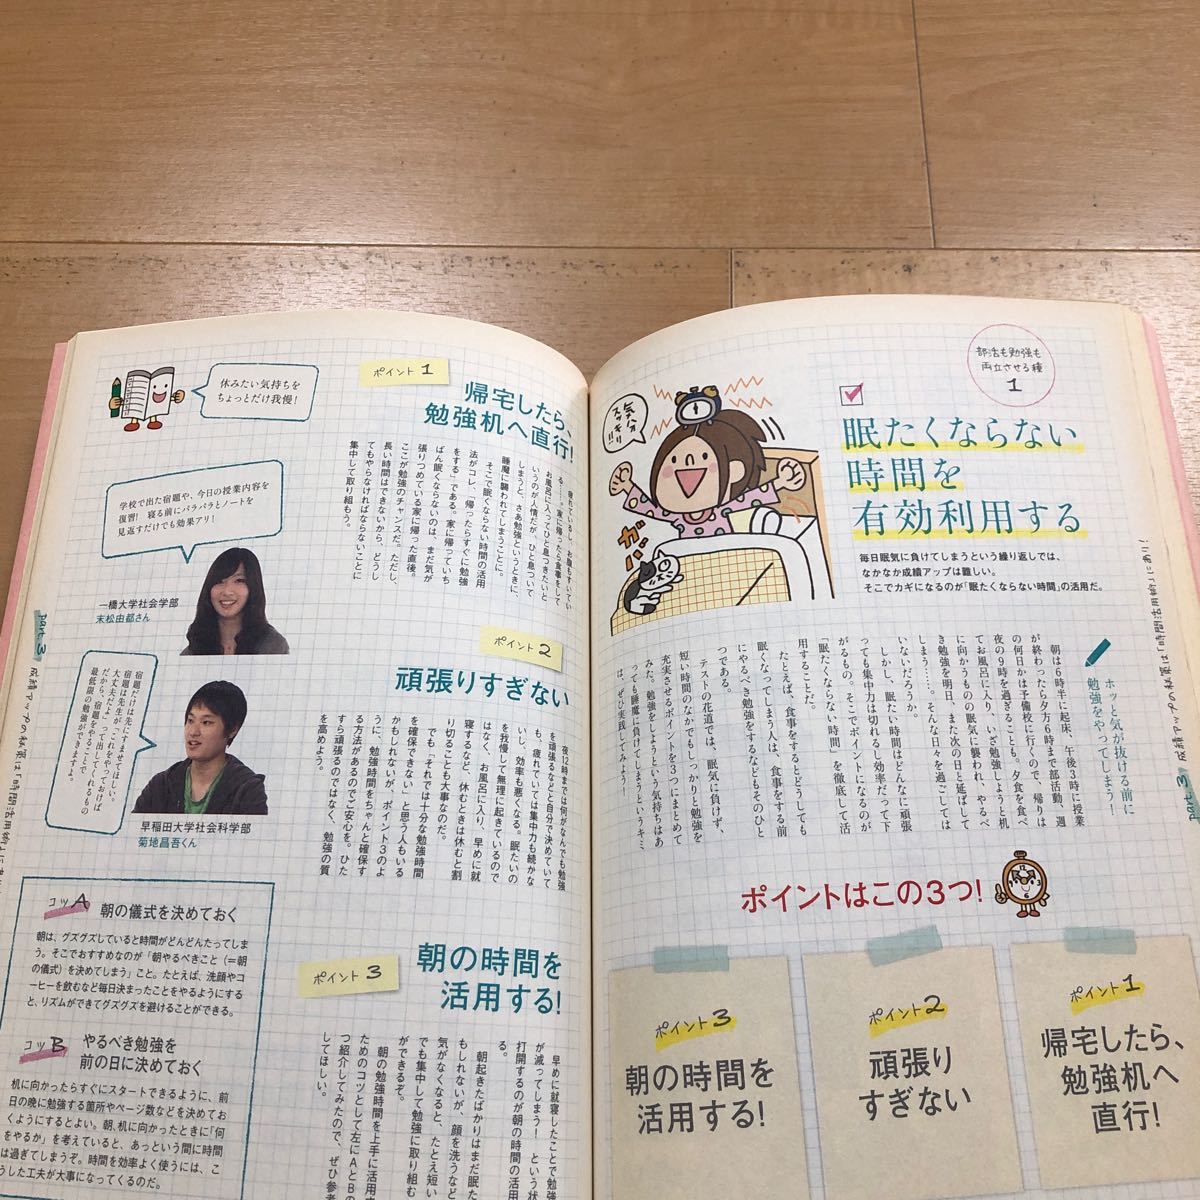 部活も勉強も
両立させる種
1
眠たくならない
時間を
有効利用する
毎日眠気に負けてしまうという繰り返しでは、
なかなか成績アップは難しい。
そこでカギになるのが「眠たくならない時間」の活用だ。
気分
スッキリ!!
ガバッ
ホッと気が抜ける前に
勉強をやってしまう!
朝は6時半に起床、午後3時に授業
が終わったら夕方6時まで部活動、週
の何日かは予備校に行くので、帰りは
夜の9時を過ぎることも。夕食を食べ
てお風呂に入り、いざ勉強しようと机
に向かうものの眠気に襲われ、やるべ
き勉強を明日、また次の日と延ばして
しまう……。そんな日々を過ごしては
いないだろうか。
しかし、眠たい時間はどんなに頑張
っても集中力は切れるし効率だって下
がるもの。そこでポイントになるのが
「眠たくならない時間」を徹底して活
用することだ。
たとえば、食事をするとどうしても
眠くなってしまう人は、食事をする前
にやるべき勉強をするなどもそのひと
つである。
テストの花道では、眠気に負けず、
短い時間のなかでもしっかりと勉強を
充実させるポイントを3つにまとめて
みた。勉強をしようという気持ちはあ
っても睡魔に負けてしまうというキミ
は、ぜひ実践してみよう!
ポイントはこの3つ!
ポイント1
帰宅したら、
勉強机へ
直行!
ポイント2
頑張り
すぎない
ポイント3
朝の時間を
活用する!
part 3
ポイント 1
帰宅したら、
勉強机へ直行!
疲れているし、お腹もすいてい
る……。家に帰ったら食事をして
お風呂に入ってひと息つきたいと
いうのが人情だが、ひと息ついて
しまうと、さあ勉強というときに、
睡魔に襲われてしまうことに。
そこで眠くならない時間の活用
法がコレ、「帰ったらすぐに勉強
をする」である。家に帰っていち
ばん眠くならないのは、まだ気が
張りつめている家に帰った直後。
ここが勉強のチャンスだ。ただし、
長い時間はできないから、どうし
てもやらなければならないことに
集中して取り組もう。
休みたい気持ちを
ちょっとだけ我慢!
学校で出た宿題や、今日の授業内容を
復習! 寝る前にパラパラとノートを
見返すだけでも効果アリ!
一橋大学社会学部
末松由都さん
宿題だけは先にすませてほしい。
宿題は先生が「これをやっておけば
大丈夫だよ」って出してくれるもの
だから、宿題をやることで
最低限の勉強ができますよ。
早稲田大学社会科学部
菊地昌吾くん
ポイント 2
頑張りすぎない
夜12時までは何がなんでも勉強
を頑張るなどと自分で決めていて
も、疲れていては集中力も続かな
いし、効率も悪くなる。眠たいの
を我慢して無理に起きているので
はなく、お風呂に入り、早めに就
寝するなど、休むときは休むと割
り切ることも大事なのだ。
でも「それでは十分な勉強時間
を確保できない」と思う人もいる
かもしれないが、ポイント3のよ
うに、勉強時間をちゃんと確保す
る方法があるのでご安心を。ひた
すら頑張るのではなく、勉強の質
を高めよう。
ポイント 3
朝の時間を
活用する!
早めに就寝したことで勉
が減ってしまう! という状
打開するのが朝の時間の活用
る。
朝起きたばかりはまだ眠た
もしれないが、顔を洗うなど
気がなくなると、たとえ短い
でも集中して勉強に取り組む
ができるぞ。
朝の勉強時間を上手に活用す
ためのコツとして左にAとBの
つ紹介してみたので、ぜひ参考
してほしい。
コツA 朝の儀式を決めておく
朝は、グズグズしていると時間がどんどんたってしま
う。そこでおすすめなのが「朝やるべきこと(=朝
の儀式)を決めてしまう」こと。たとえば、洗顔やコ
ーヒーを飲むなど毎日決まったことをやるようにする
と、リズムができてグズグズを避けることができる。
コツB やるべき勉強を
前の日に決めておく
机に向かったらすぐにスタートできるように、前
日の晩に勉強する箇所やページ数などを決めてお
くようにするとよい。朝、机に向かったときに「何
をやるか」を考えていると、あっという間に時間
は過ぎてしまうぞ。時間を効率よく使うには、こ
うした工夫が大事になってくるのだ。
part 3
成績アップの秘策は「時間活用術」に